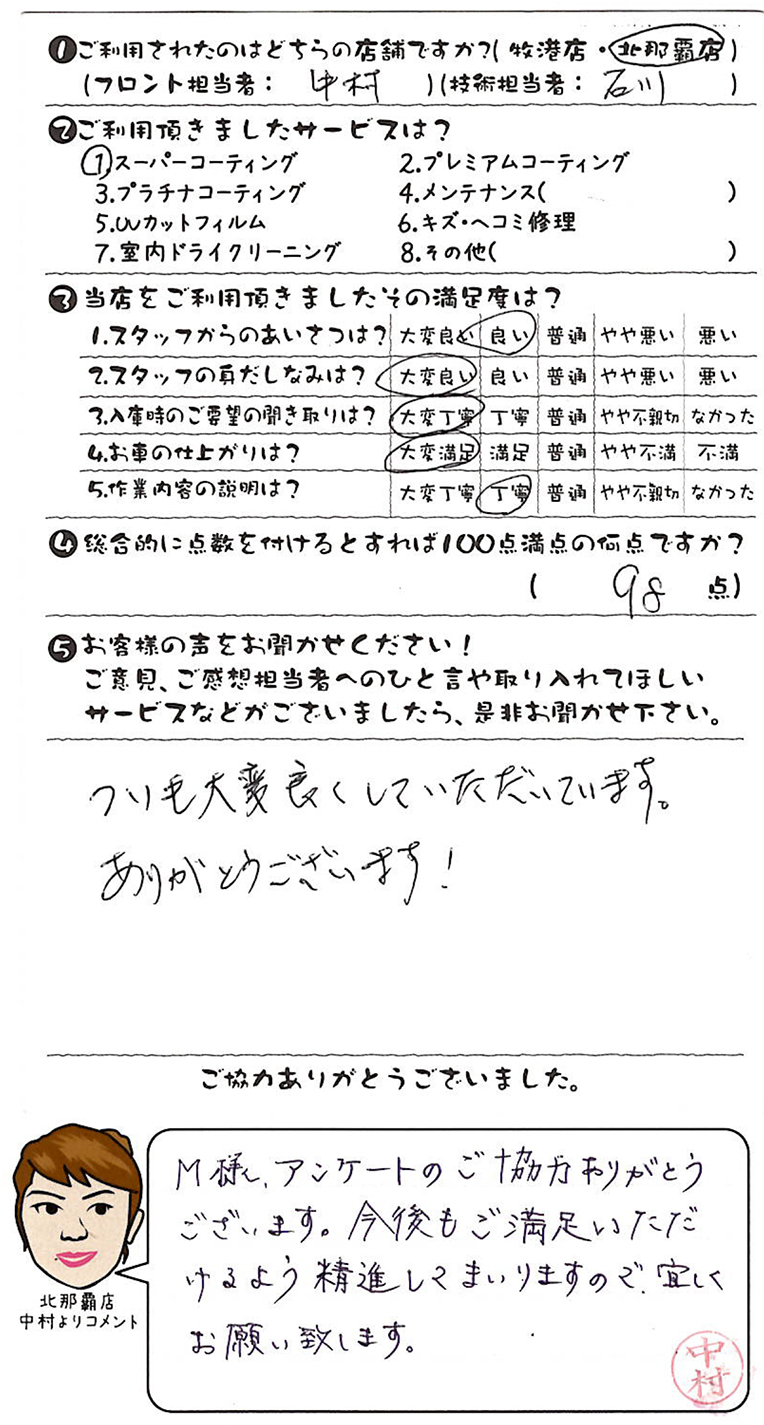 ❶ご利用されたのはどちらの店舗ですか?(牧港店・北那覇店)
(フロント担当者: 中村 )(技術担当者: 石川 )
❷ご利用頂きましたサービスは?
1.スーパーコーティング 2.プレミアムコーティング
3.プラチナコーティング 4.メンテナンス( )
5.UVカットフィルム 6.キズ・ヘコミ修理
7.室内ドライクリーニング 8.その他( )
❸当店をご利用頂きましたその満足度は?
1.スタッフからのあいさつは? 大変良い 良い 普通 やや悪い 悪い
2.スタッフの身だしなみは? 大変良い 良い 普通 やや悪い 悪い
3.入庫時のご要望の聞き取りは? 大変丁寧 丁寧 普通 やや不親切 なかった
4.お車の仕上がりは? 大変満足 満足 普通 やや不満 不満
5.作業内容の説明は? 大変丁寧 丁寧 普通 やや不親切 なかった
❹総合的に点数を付けるとすれば100点満点の何点ですか?
( 98 点)
❺お客様の声をお聞かせください!
ご意見、ご感想担当者へのひと言や取り入れてほしい
サービスなどがございましたら、是非お聞かせ下さい。
いつも大変良くしていただいています。
ありがとうございます!
ご協力ありがとうございました。
M様、アンケートのご協力ありがとう
ございます。今後もご満足いただ
けるよう精進してまいりますので、宜しく
お願い致します。
中村
北那覇店
中村よりコメント